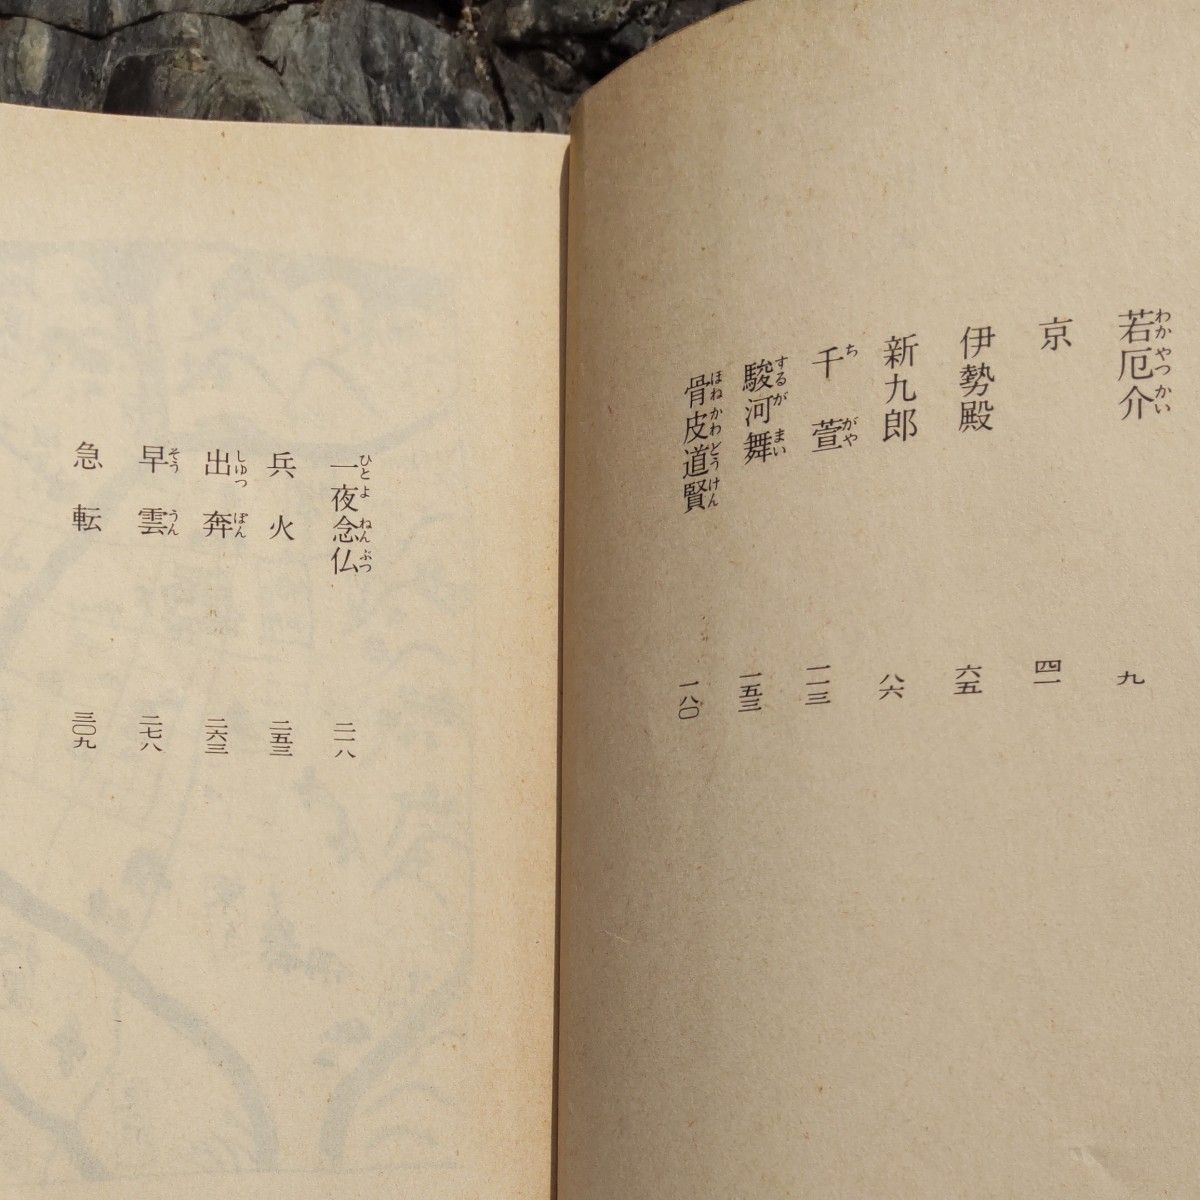 若厄介 九
わか やつ かい
京 四一
伊勢殿 六五
新九郎 八六
千萱 一一三
ち がや
駿河舞 一五三
するが まい
骨皮道賢 一八〇
ほねかわどうけん
一夜念仏 二一八
ひとよ ねんぶつ
兵火 二五三
出奔 二六三
しゆつ ぽん
早雲 二七八
そう うん
急転 三〇九